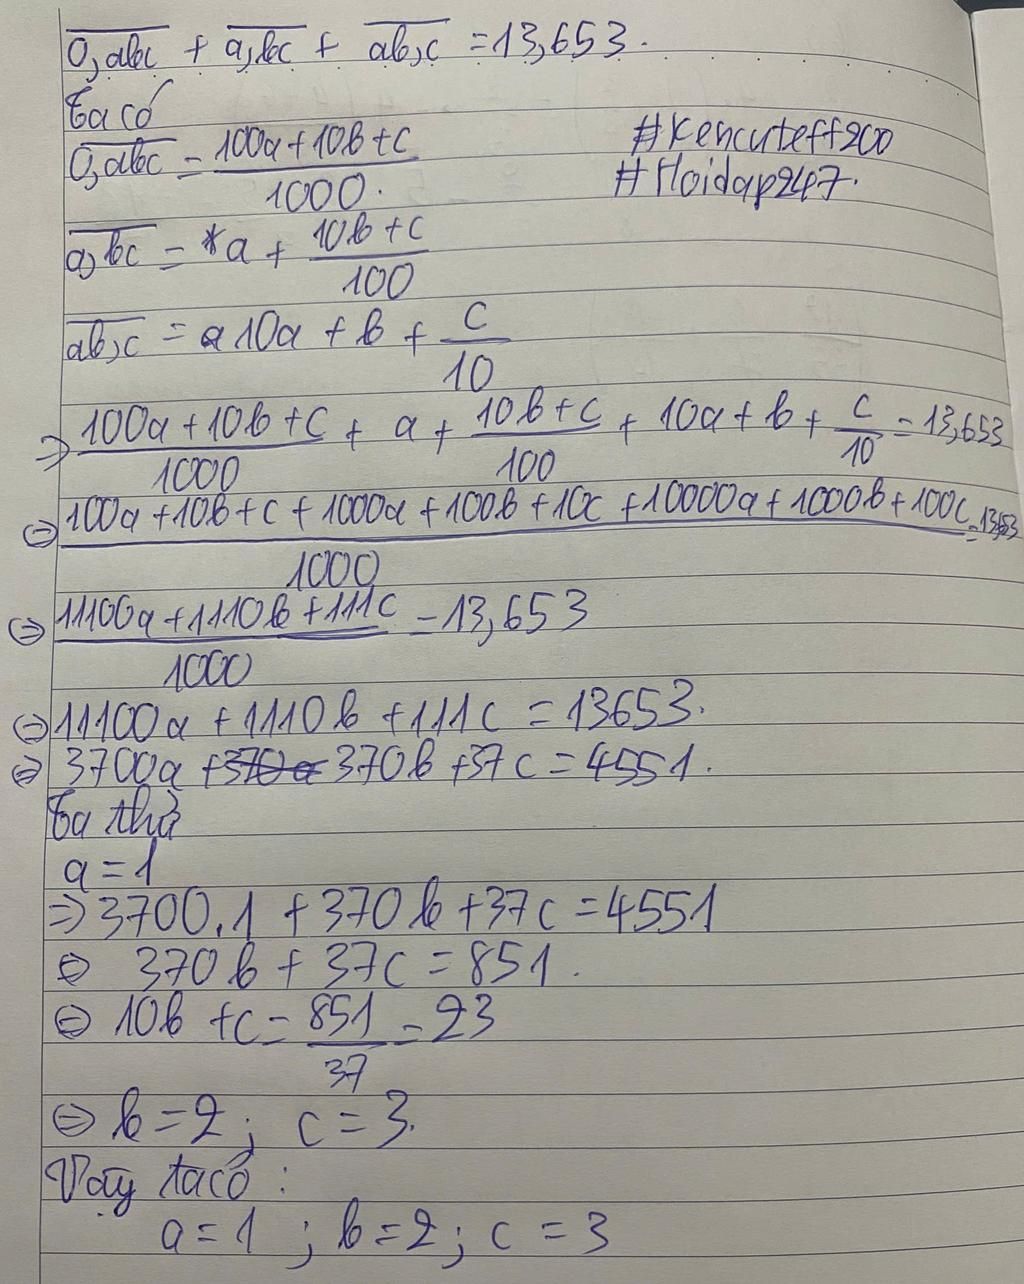 0,abc + a,bc + ab,c = 13,653.
ta có
0,abc = (100a+10b+c)/1000.
#Kencuteff200
#Hoidap247.
a,bc = *a + (10b+c)/100
ab,c = a 10a + b + c/10
⇒ (100a+10b+c)/1000 + a + (10b+c)/100 + 10a + b + c/10 = 13,653
⇔ (100a+10b+c+1000a+100b+10c+10000a+1000b+100c)/1000 = 13,653
⇔ (11100a+1110b+111c)/1000 = 13,653
⇔ 11100a + 1110b + 111c = 13653.
⇔ 3700a + 370a 370b + 37c = 4551.
Ta thử
a = 1
⇒ 3700.1 + 370b + 37c = 4551
⇔ 370b + 37c = 851.
⇔ 10b + c = 851/37 = 23
⇔ b = 2; c = 3.
Vậy ta có :
a = 1 ; b = 2 ; c = 3